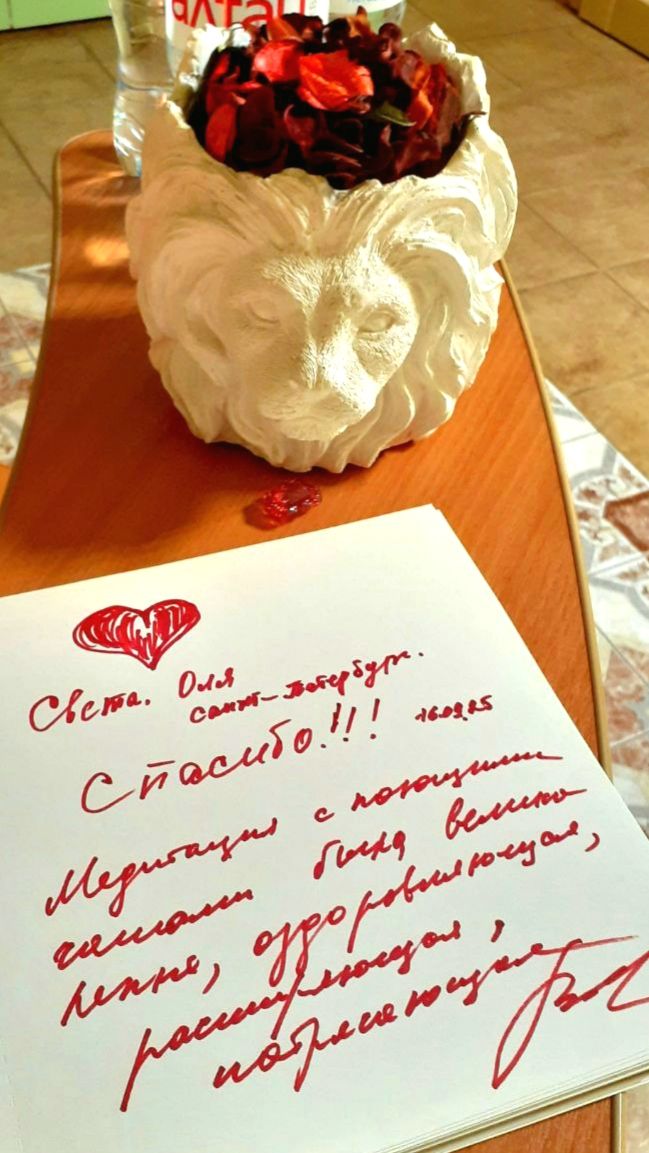 алтай
Света. Оля
санкт-Петербург.
Спасибо!!! 16.09.25
Медитация с поющими
чашами была велико
лепна, оздоровляющая,
расширяющая,
потрясающая